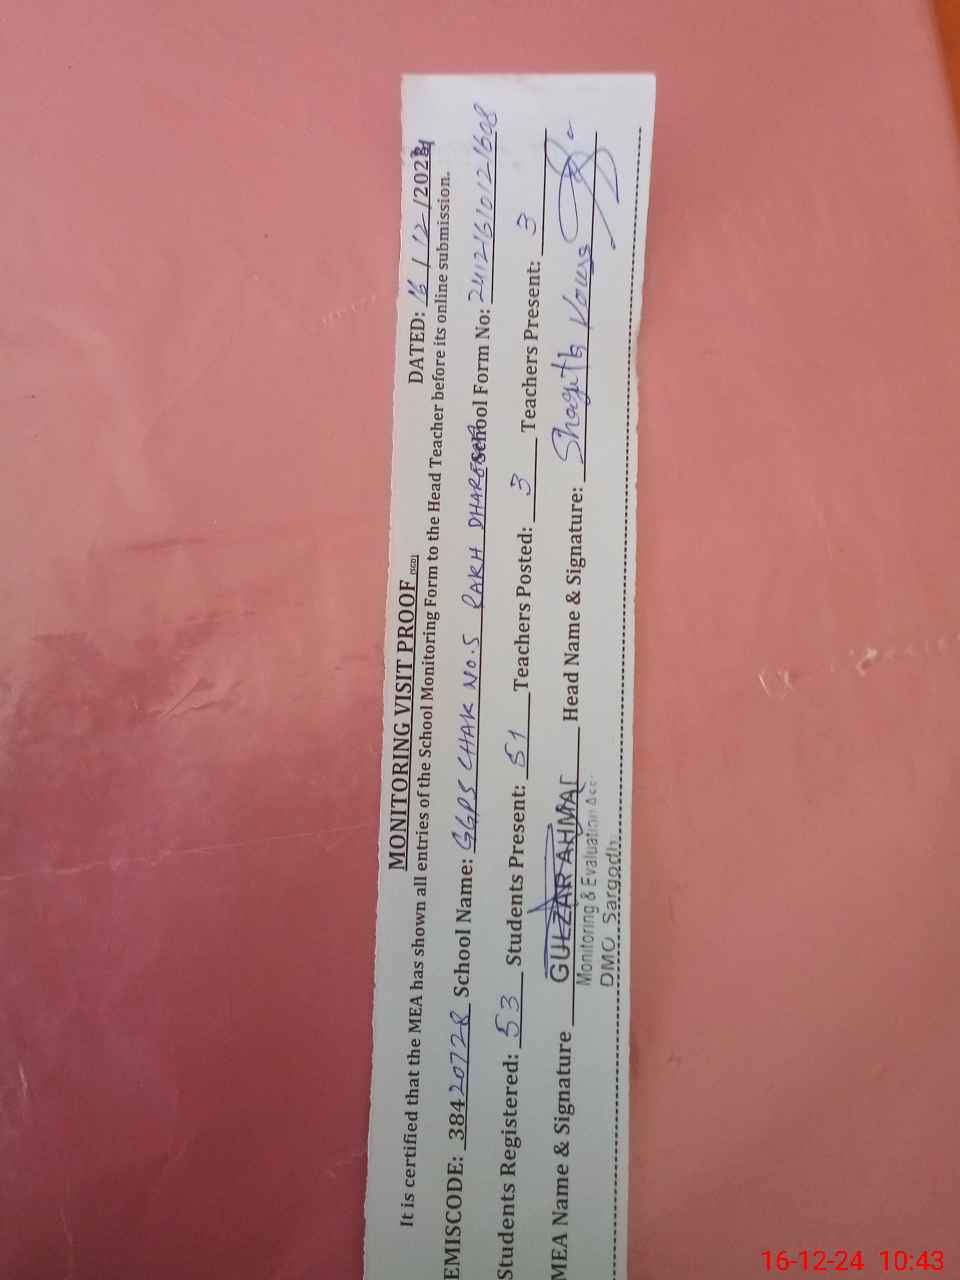 MONITORING VISIT PROOF (SGD) DATED: 16 / 12 /2024
It is certified that the MEA has shown all entries of the School Monitoring Form to the Head Teacher before its online submission.
EMISCODE: 38420728 School Name: GGPS CHAK NO.5 RAKH School Form No: 241216101121608
Students Registered: 53 Students Present: 51 Teachers Posted: 3 Teachers Present: 3
MEA Name & Signature GULZAR AHMAD Head Name & Signature:
Monitoring & Evaluation
DMO Sargodh
16-12-24 10:43